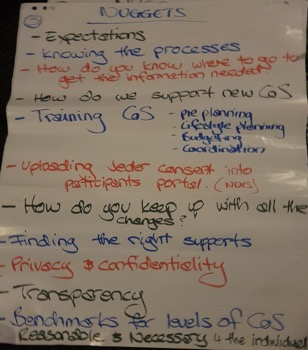 NUGGETS
- Expectations
- Knowing the processes
- How do you know where to go to
get the information needed
- How do we support new CoS
- Training CoS - pre planning
- Lifestyle planning
- Budgeting
- Coordination
- Uploading Jeder consent into
participants portal. (NDIS)
- How do you keep up with all the
changes?
- Finding the right supports
- Privacy & confidentiality
- Transparency
- Benchmarks for levels of CoS
Reasonable & Necessary 4 the individual